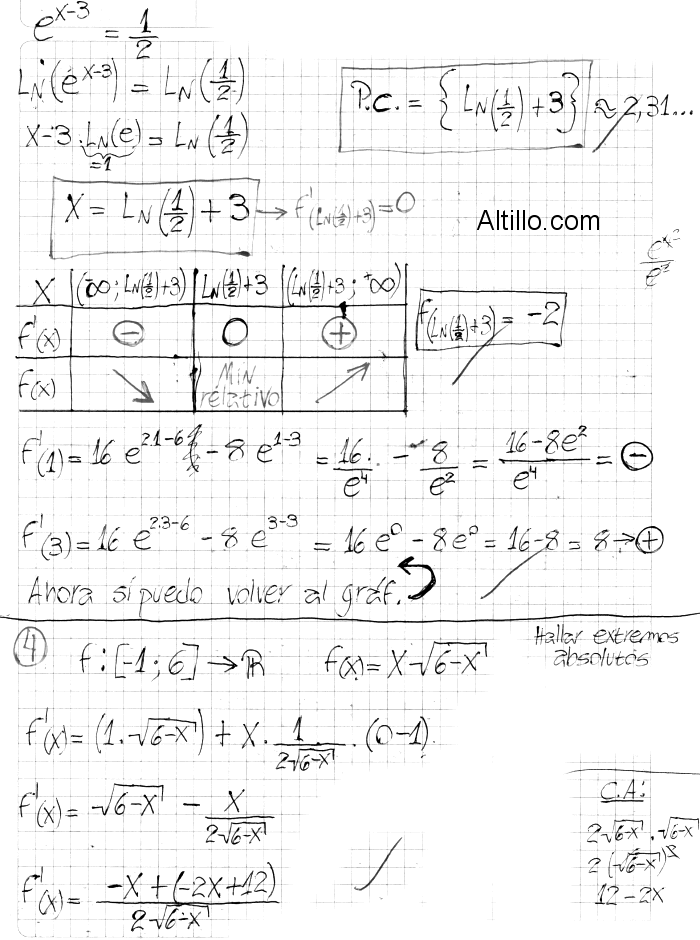 e^{x-3} = 1/2
LN(e^{x-3}) = LN(1/2)
x-3 . LN(e) = LN(1/2)
=1
P.C. = {LN(1/2) + 3} ≈ 2,31...
X = LN(1/2) + 3 → f'(LN(1/2)+3) = 0
Altillo.com
e^{x^2}/e^3
X | (-∞; LN(1/2)+3) | LN(1/2)+3 | (LN(1/2)+3; +∞)
f'(x) | ⊖ | 0 | ⊕
f(LN(1/2)+3) = -2
f(x) | ↘ | MIN relativo | ↗
f'(1) = 16 e^{2.1-6} - 8 e^{1-3} = 16/e^4 - 8/e^2 = (16-8e^2)/e^4 = ⊖
f'(3) = 16 e^{2.3-6} - 8 e^{3-3} = 16 e^0 - 8e^0 = 16-8 = 8 → ⊕
Ahora sí puedo volver al gráf.
④ f: [-1; 6] → ℝ f(x) = X·√(6-x)
Hallar extremos
absolutos
f'(x) = (1·√(6-x)) + X · 1/(2√(6-x)) · (0-1)
f'(x) = √(6-x) - X/(2√(6-x))
f'(x) = (-X + (-2X+12))/(2√(6-x))
C.A:
2√(6-x) . √(6-x)
2 (√(6-x))^2
12 - 2x